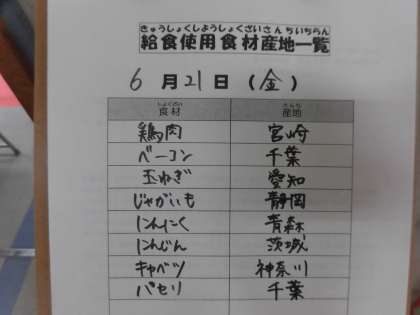 きゅうしょくしようしょくざいさんちいちらん
給食使用食材産地一覧
6月21日(金)
しょくざい さんち
食材 産地
鶏肉 宮崎
ベーコン 千葉
玉ねぎ 愛知
じゃがいも 静岡
にんにく 青森
にんじん 茨城
キャベツ 神奈川
パセリ 千葉